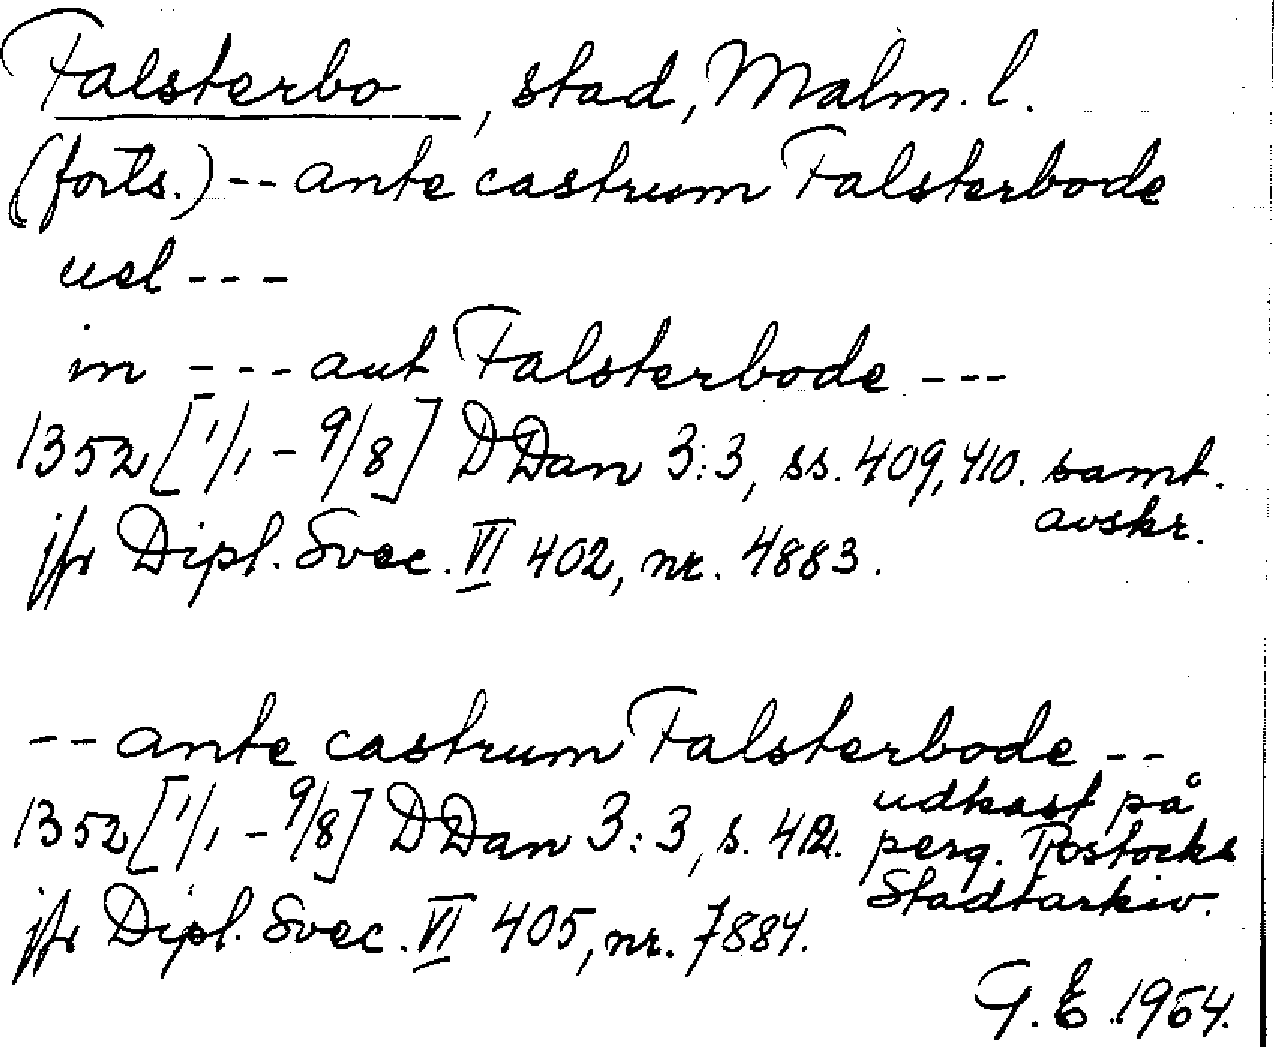 Falsterbo, stad, Malm. l.
(forts.) -- ante castrum Falsterbode
uel ---
in --- aut Falsterbode ---
1352 [1/1 - 9/8] DDan 3:3, ss. 409, 410. samt. avskr.
jfr Dipl. Svec. VI 402, nr. 4883.
-- ante castrum Falsterbode --
1352 [1/1 - 9/8] DDan 3:3, s. 412. udkast på
perg. Rostocks
Stadtarkiv.
jfr Dipl. Svec. VI 405, nr. 7884.
G.E. 1964.